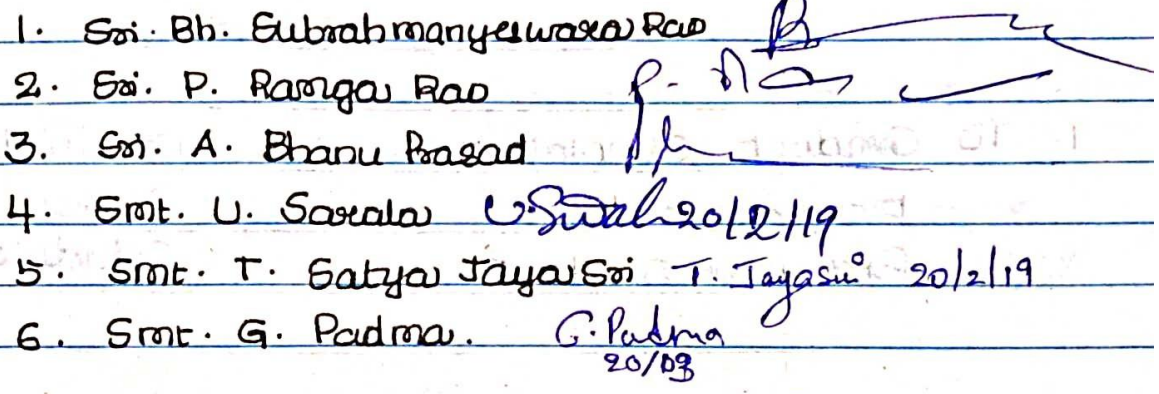 1. Sri. Bh. Subrahmanyeswara Rao
2. Sri. P. Ranga Rao
3. Sri. A. Bhanu Prasad
4. Smt. U. Sarala 20/2/19
5. Smt. T. Satya Jaya Sri T. Jayasri 20/2/19
6. Smt. G. Padma. G. Padma
20/03